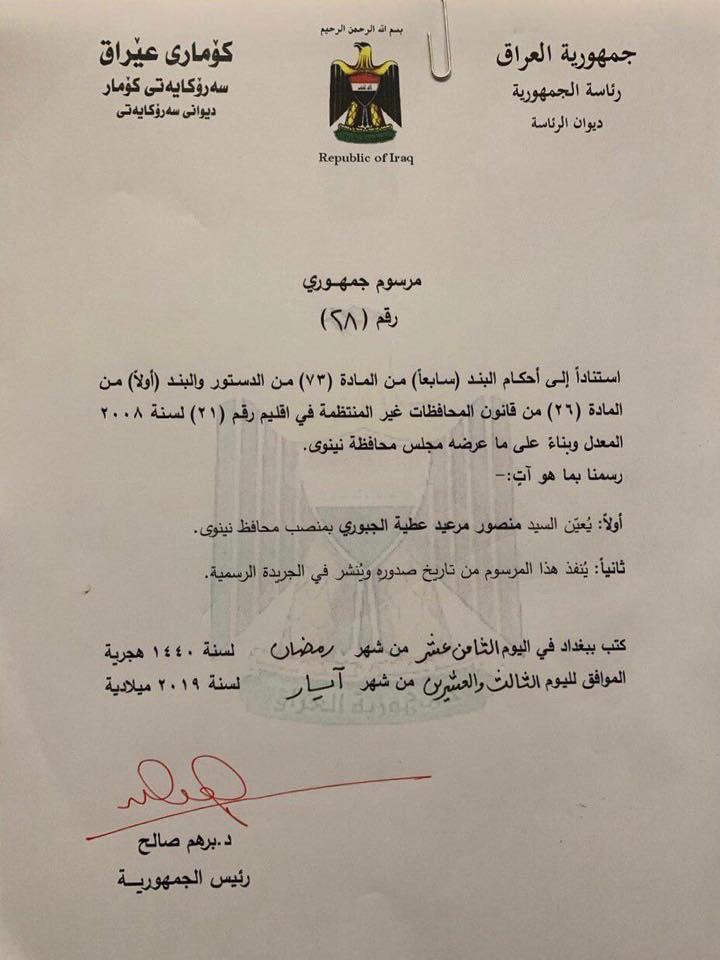 بسم الله الرحمن الرحيم
جمهورية العراق
رئاسة الجمهورية
ديوان الرئاسة
كۆماری عێراق
سەرۆكایەتی كۆمار
دیوانی سەرۆكایەتی
Republic of Iraq
مرسوم جمهوري
رقم (٢٨)
استناداً إلى أحكام البند (سابعاً) من المادة (٧٣) من الدستور والبند (أولاً) من
المادة (٢٦) من قانون المحافظات غير المنتظمة في اقليم رقم (٢١) لسنة ٢٠٠٨
المعدل وبناءً على ما عرضه مجلس محافظة نينوى.
رسمنا بما هو آتٍ:-
أولاً: يُعيّن السيد منصور مرعيد عطية الجبوري بمنصب محافظ نينوى.
ثانياً: يُنفذ هذا المرسوم من تاريخ صدوره ويُنشر في الجريدة الرسمية.
كتب ببغداد في اليوم الثامن عشر من شهر رمضان لسنة ١٤٤٠ هجرية
الموافق لليوم الثالث والعشرين من شهر آيار لسنة ٢٠١٩ ميلادية
د.برهم صالح
رئيس الجمهوريـة